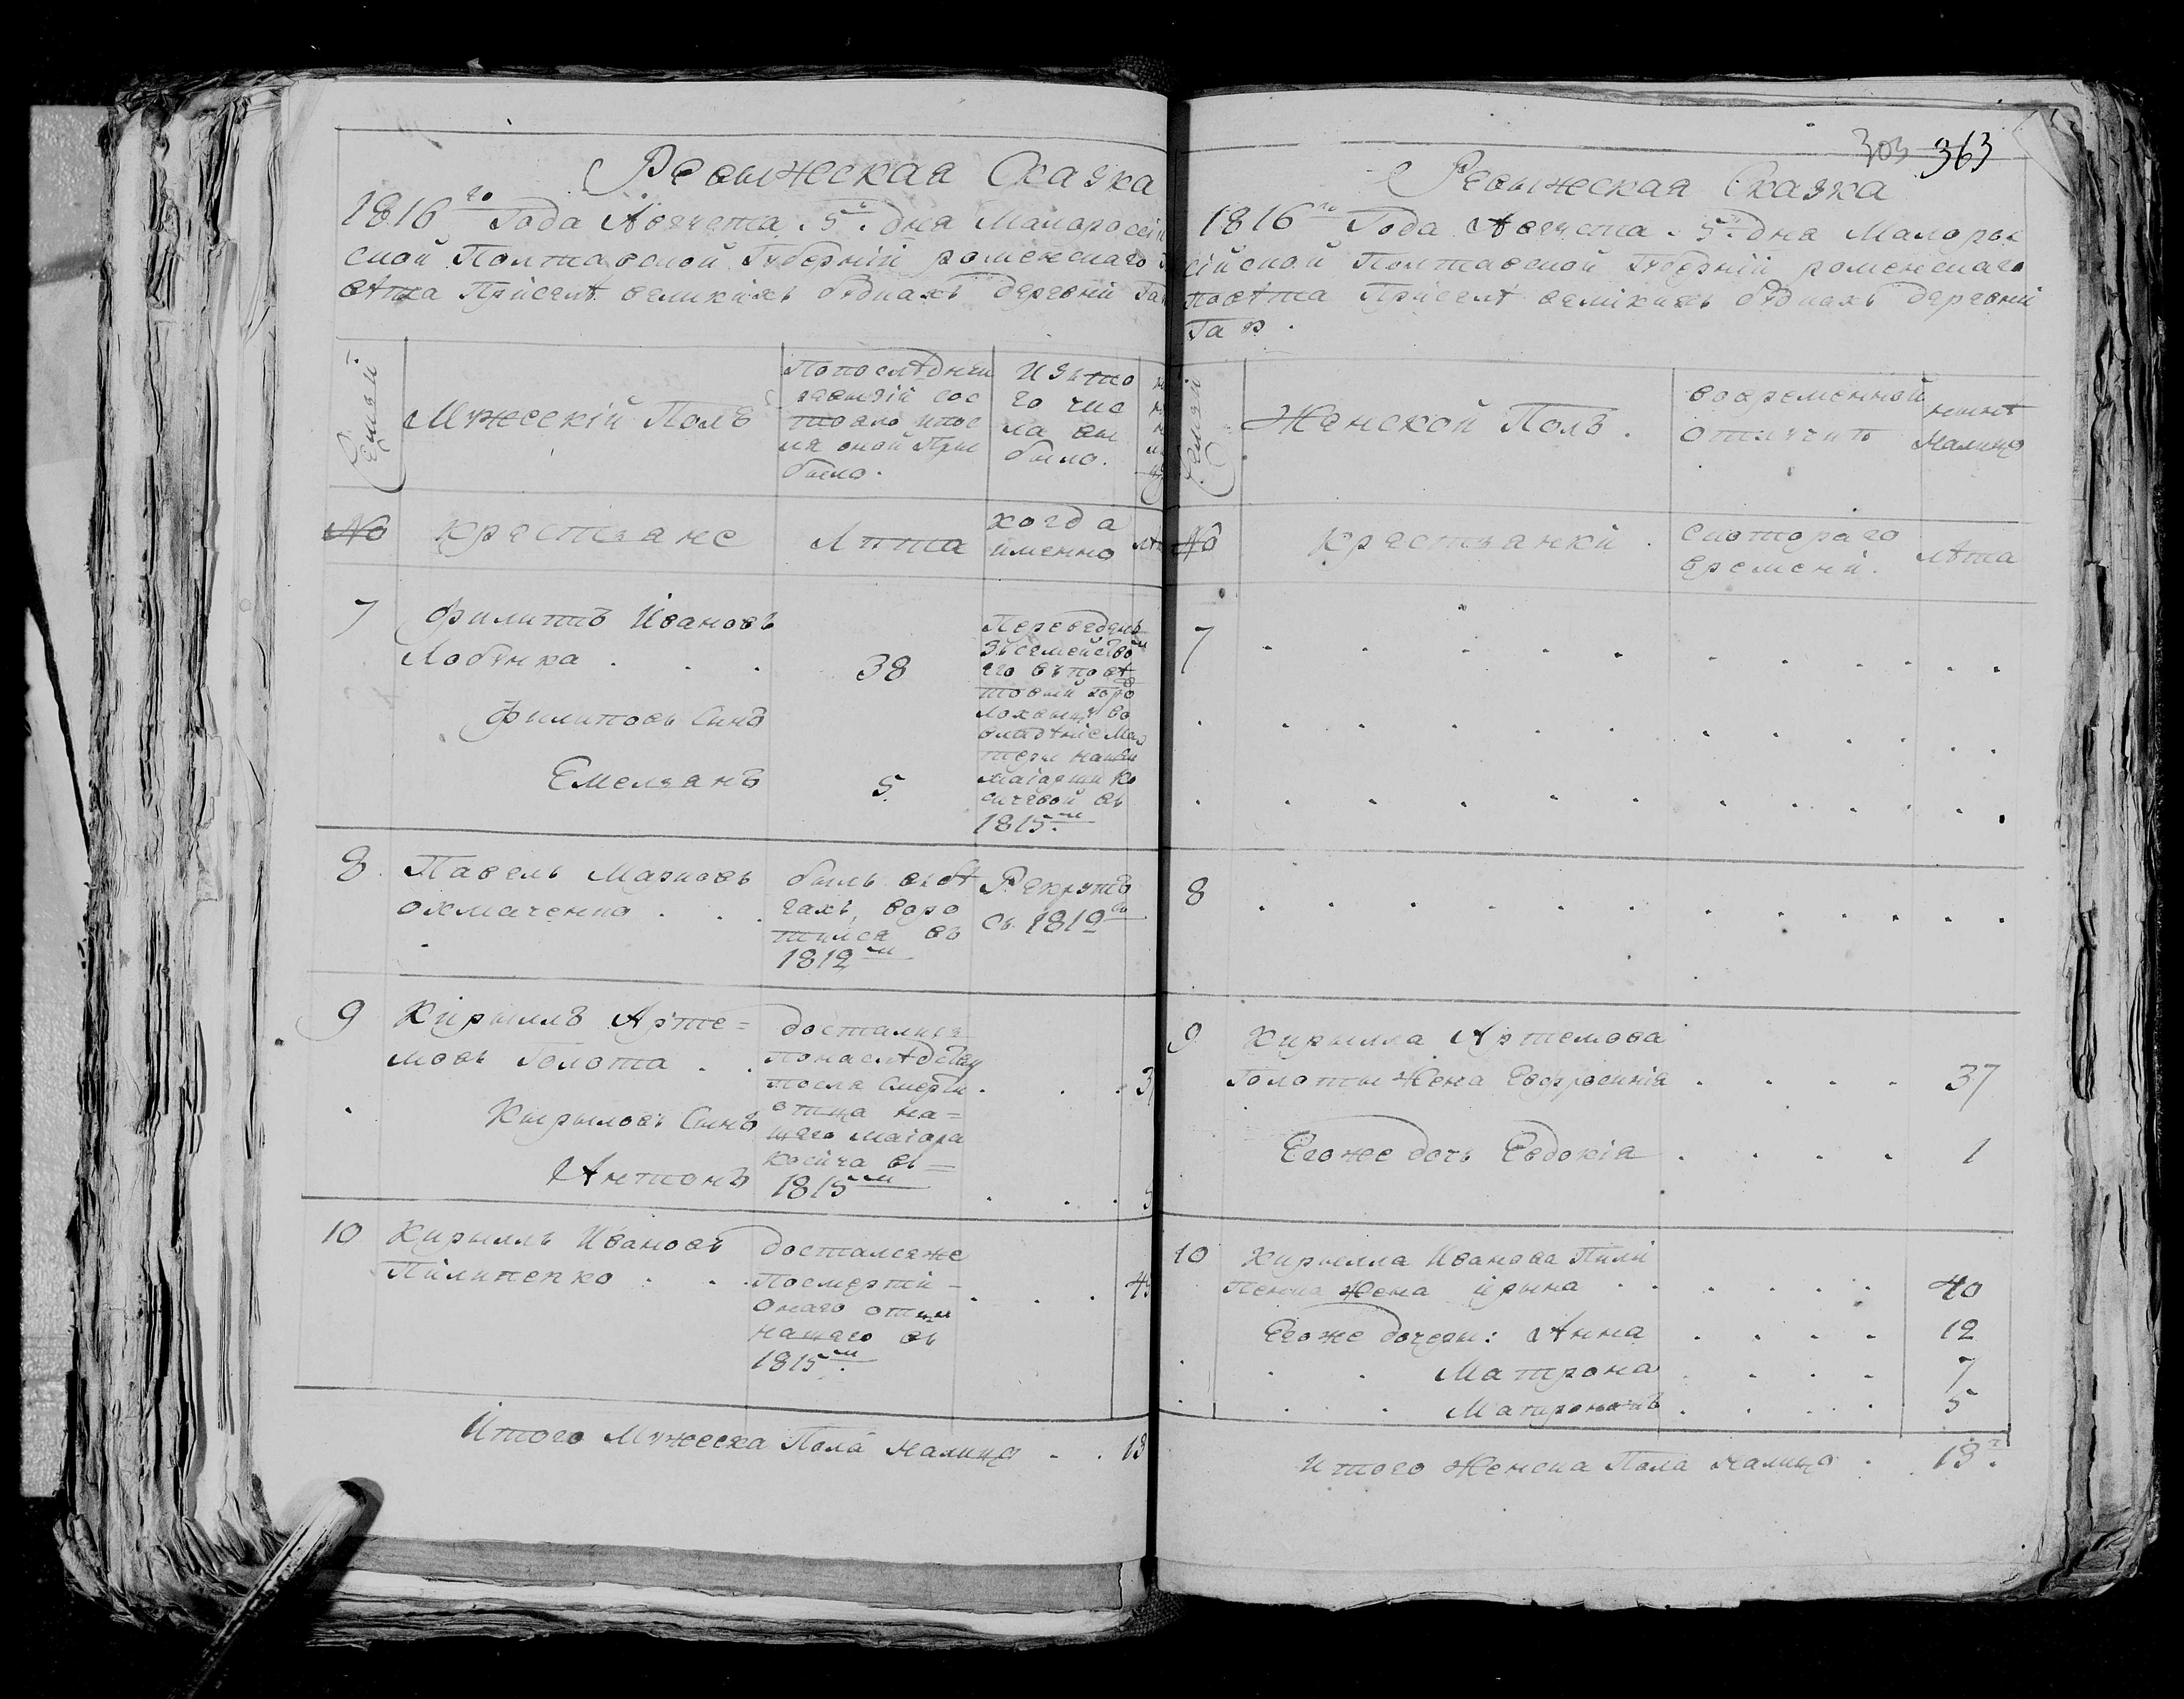 Ревыжеская Сказка
1816го Года Августа 5го дня Малоросcій
ской Полтавской Губерній роменскаго
ѣта Прйселѣ великихъ будкахъ деревнй Га
Семьй
Мужескій Полъ
Попослѣдней
ревизій сос
тояло ипос
ля оной При
было.
Изъто
го чис
ла вы
было.
№
крестьяне
Лѣта
когда
именно
7
Филиппъ Ивановъ
Лобунка . . .
38
Филиповъ Сынъ
Емельянъ
5.
Переведенъ
зъсемейством
его въповѣ
товый горо
Лохвицу во
владѣніе Ма
тери нашей
маіорши Ко
сичевой въ
1815м.
8
Павелъ Марковъ
охмаченко . . .
былъ въбѣ
гахъ, воро
тился въ
1812м
Рекрутъ
съ 1812го
9
Кирыллъ Арте=
мовъ Голота . .
Кырыловъ Сынъ
Антонъ
достались
понаслѣдству
после Смерти
отца на=
шего маіора
Косича въ=
1815м
. . . 3
. . . 5
10
Кирыллъ Ивановъ
Пилипенко . . .
досталсяже
Посмерти=
онаго отца
нашего въ
1815м.
. . . 4
Итого Мужеска Пола налицо . . 13
303 363
Ревыжеская Сказка
1816го Года Августа 5го дня Малорос
сійской Полтавской Губерній роменскаго
Повѣта Прйселѣ великихъ будкахъ деревнй
Гаѣ .
Семьй
Женской Полъ .
вовременной
отлучкѣ
нынѣ
Налицо
№
крестьянкй .
Скотораго
временй.
лѣта
7
8
9
Кирылла Артемова
Голоты Жена Евфросинія . . . . 37
Егоже дочь Евдокія . . . . 1
10
Кирылла Иванова Пили
Пенка Жена ирына . . . . . . 40
Егоже дочери: Анна . . . . 12
. . . Матрона . . . . 7
. . . . . . . . 5
Итого Женска Пола налицо . 13.